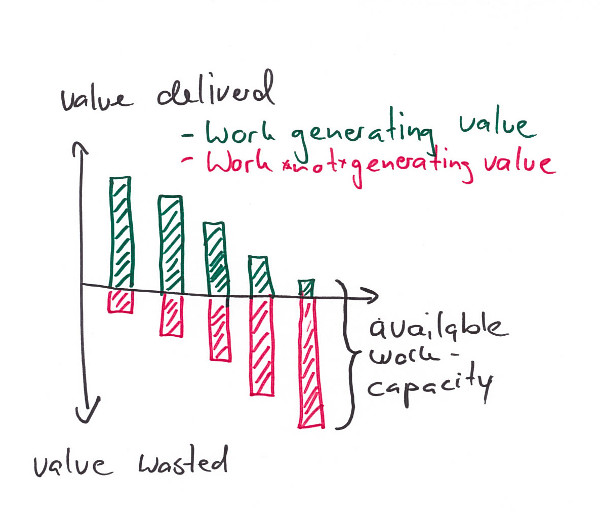 value deliverd
- Work generating value
- Work *not* generating value
available
work-
capacity
value wasted